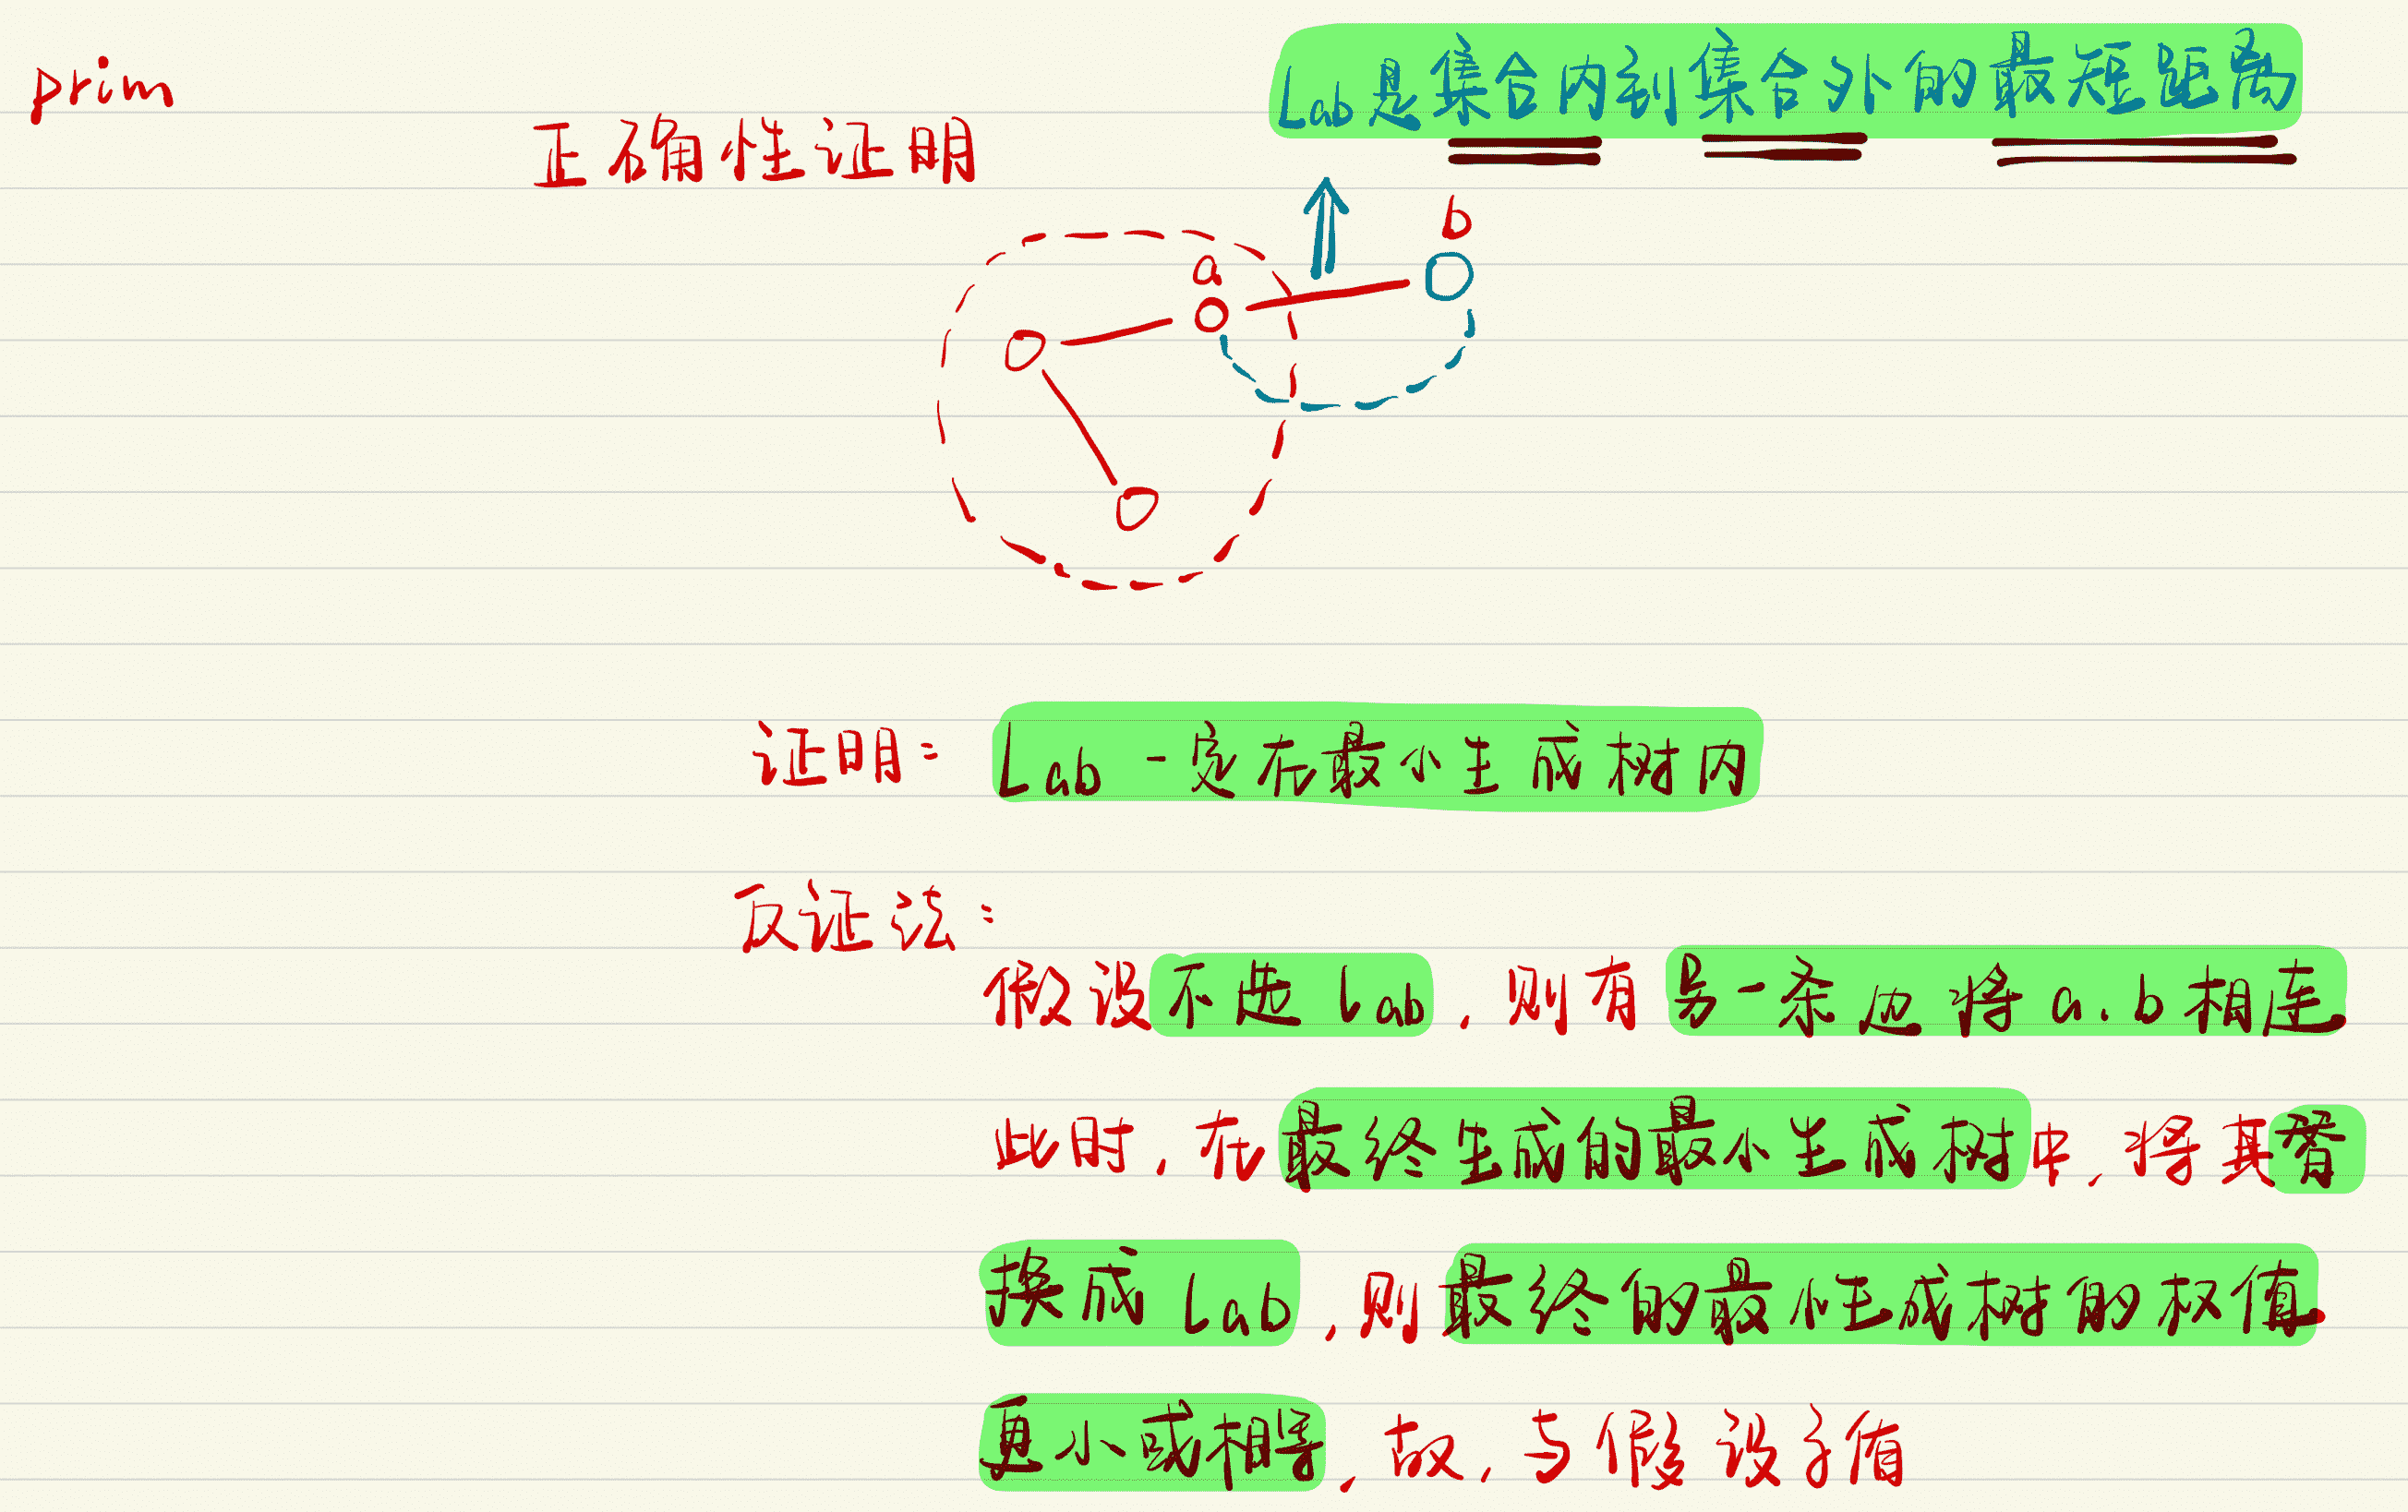 prim
Lab是集合内到集合外的最短距离
正确性证明
b
a
证明：Lab一定在最小生成树内
反证法：
假设不选Lab，则有另一条边将a.b相连
此时，在最终生成的最小生成树中，将其替
换成Lab，则最终的最小生成树的权值
更小或相等，故，与假设矛盾